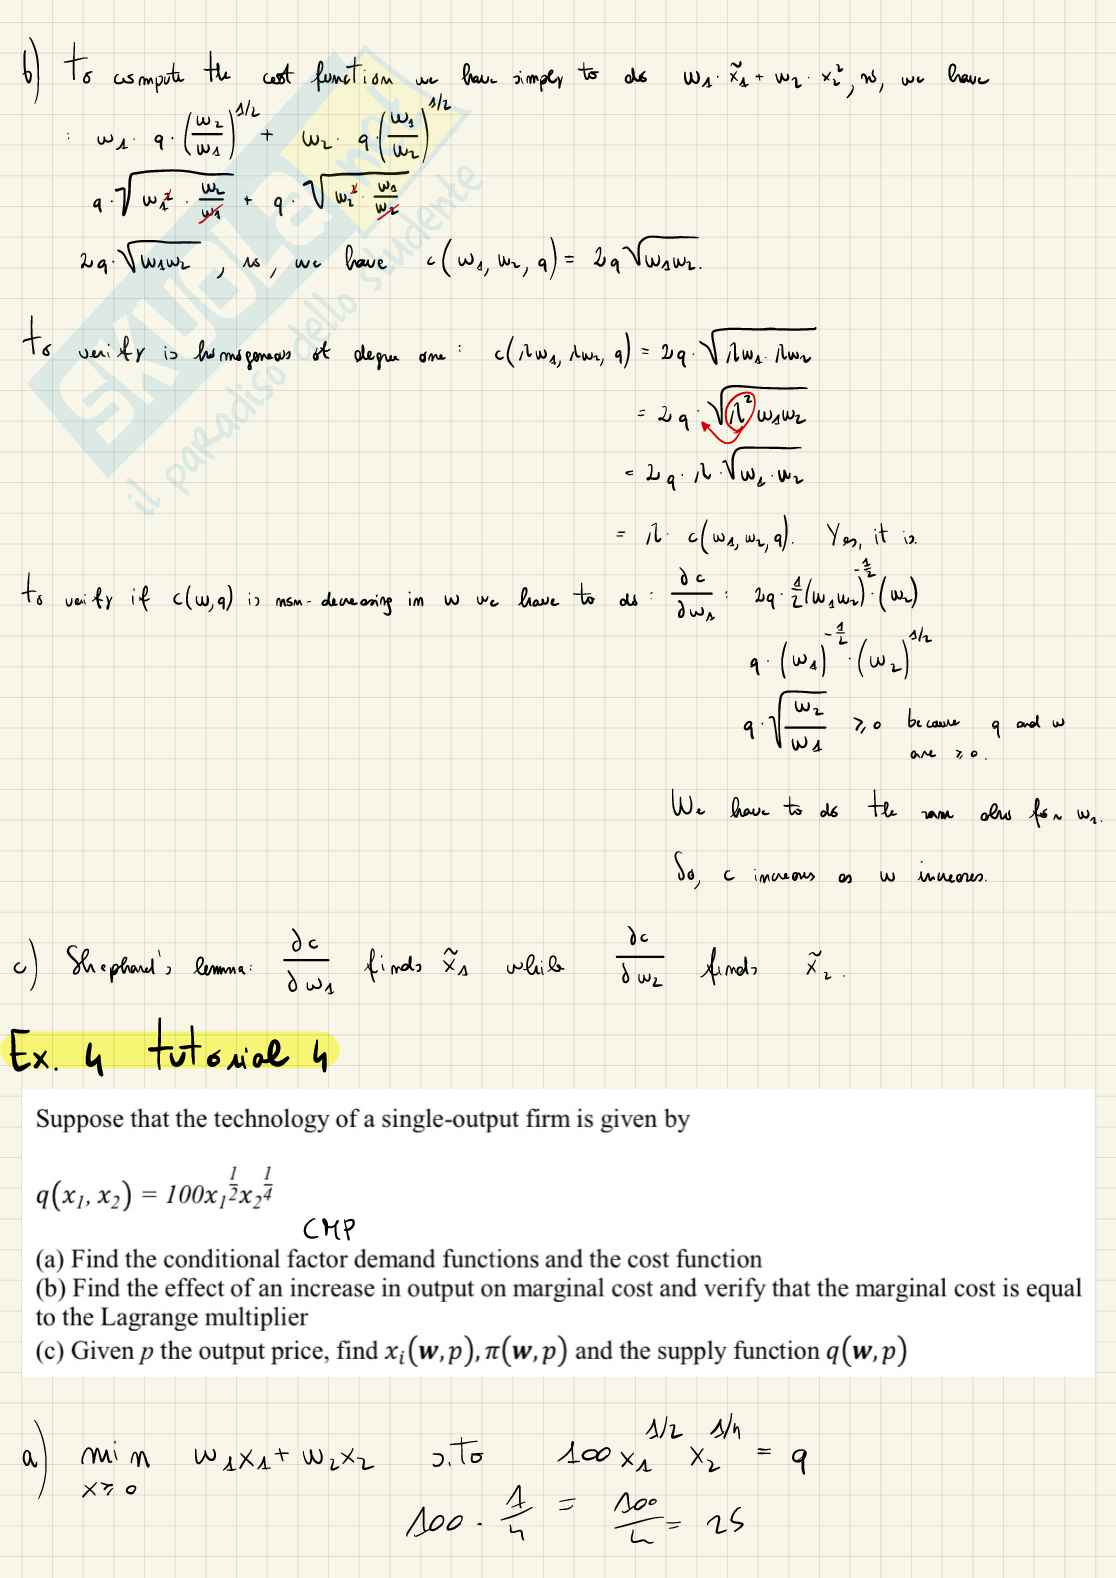 b) to compute the cost function we have simply to do w₁ · x̃₁ + w₂ · x̃₂, so, we have
: w₁ · q · (w₂/w₁)^1/2 + w₂ · q · (w₁/w₂)^1/2
q · √(w₁² · w₂/w₁) + q · √(w₂² · w₁/w₂)
2q · √(w₁w₂) , so, we have c(w₁, w₂, q) = 2q √(w₁w₂).
to verify is homogeneous of degree one : c(λw₁, λw₂, q) = 2q · √(λw₁ · λw₂)
= 2q · √(λ² w₁w₂)
= 2q · λ · √(w₁ · w₂)
= λ · c(w₁, w₂, q). Yes, it is.
to verify if c(w,q) is non-decreasing in w we have to do : ∂c/∂w₁ : 2q · 1/2 (w₁w₂)^-1/2 · (w₂)
q · (w₁)^-1/2 · (w₂)^1/2
q · √(w₂/w₁) ≥ 0 because q and w
are ≥ 0.
We have to do the same also for w₂.
So, c increases as w increases.
c) Shephard's lemma: ∂c/∂w₁ finds x̃₁ while ∂c/∂w₂ finds x̃₂.
Ex. 4 tutorial 4
Suppose that the technology of a single-output firm is given by
q(x₁, x₂) = 100x₁^1/2 x₂^1/4
CMP
(a) Find the conditional factor demand functions and the cost function
(b) Find the effect of an increase in output on marginal cost and verify that the marginal cost is equal
to the Lagrange multiplier
(c) Given p the output price, find xᵢ(w, p), π(w, p) and the supply function q(w, p)
a) min w₁x₁ + w₂x₂ s.to 100 x₁^1/2 x₂^1/4 = q
x ≥ 0
100 · 1/4 = 100/4 = 25
SKUOLA.net
il paradiso dello studente